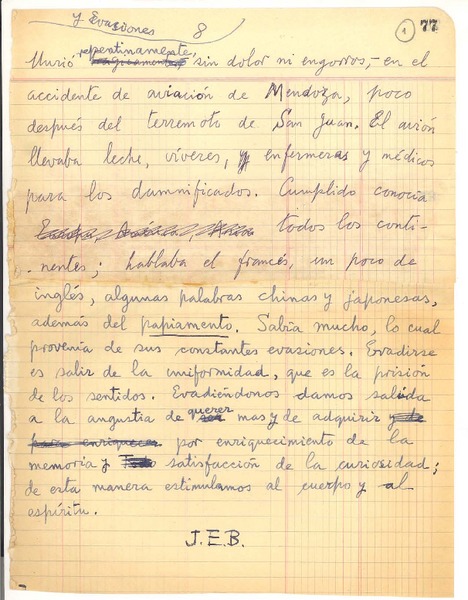 y Evasiones 8 1 77
repentinamente,
Murió sin dolor ni engorros, en el
accidente de aviación de Mendoza, poco
después del terremoto de San Juan. El avión
llevaba leche, víveres, y enfermeras y médicos
para los damnificados. Cumplido conocía
todos los conti-
nentes; hablaba el francés, un poco de
inglés, algunas palabras chinas y japonesas,
además del papiamento. Sabía mucho, lo cual
provenía de sus constantes evasiones. Evadirse
es salir de la uniformidad, que es la prisión
de los sentidos. Evadiéndonos damos salida
a la angustia de querer mas y de adquirir y
para enriquecer por enriquecimiento de la
memoria y satisfacción de la curiosidad;
de esta manera estimulamos al cuerpo y al
espíritu.
J.E.B.